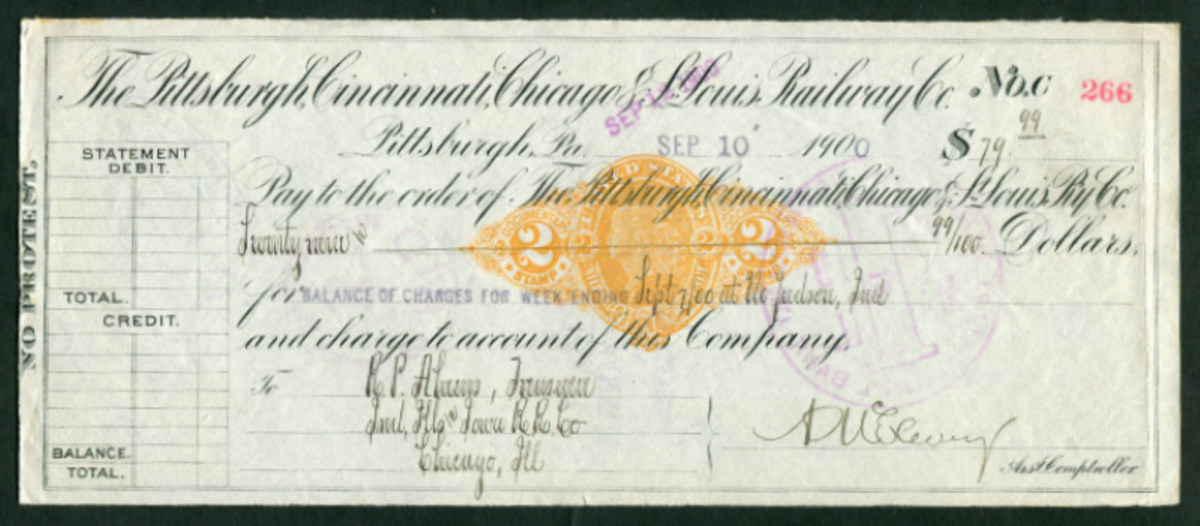 The Pittsburgh, Cincinnati, Chicago & St. Louis Railway Co. No. C 266
Pittsburgh, Pa. SEP 10 1900 $ 79.99
Pay to the order of The Pittsburgh, Cincinnati, Chicago & St. Louis Ry. Co.
Seventy nine & 99/100 Dollars,
for BALANCE OF CHARGES FOR WEEK ENDING Sept 7/00 at No Judson, Ind
and charge to account of this Company.
To
Treasurer
Ind, Ills & Iowa R.R. Co
Chicago, Ill
Asst Comptroller
STATEMENT
DEBIT.
TOTAL.
CREDIT.
BALANCE.
TOTAL.
NO PROTEST.
2 2
STAMP